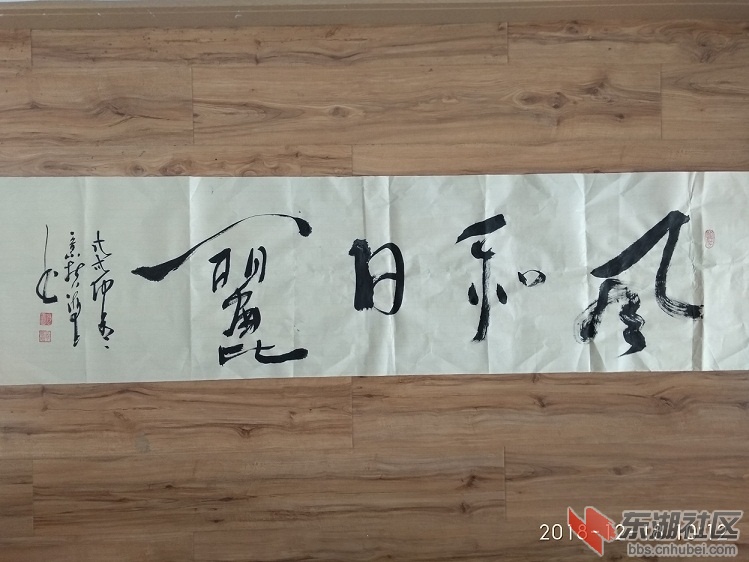 風和日麗
戊戌仲春
2018-12-
东湖社区
bbs.cnhubei.com